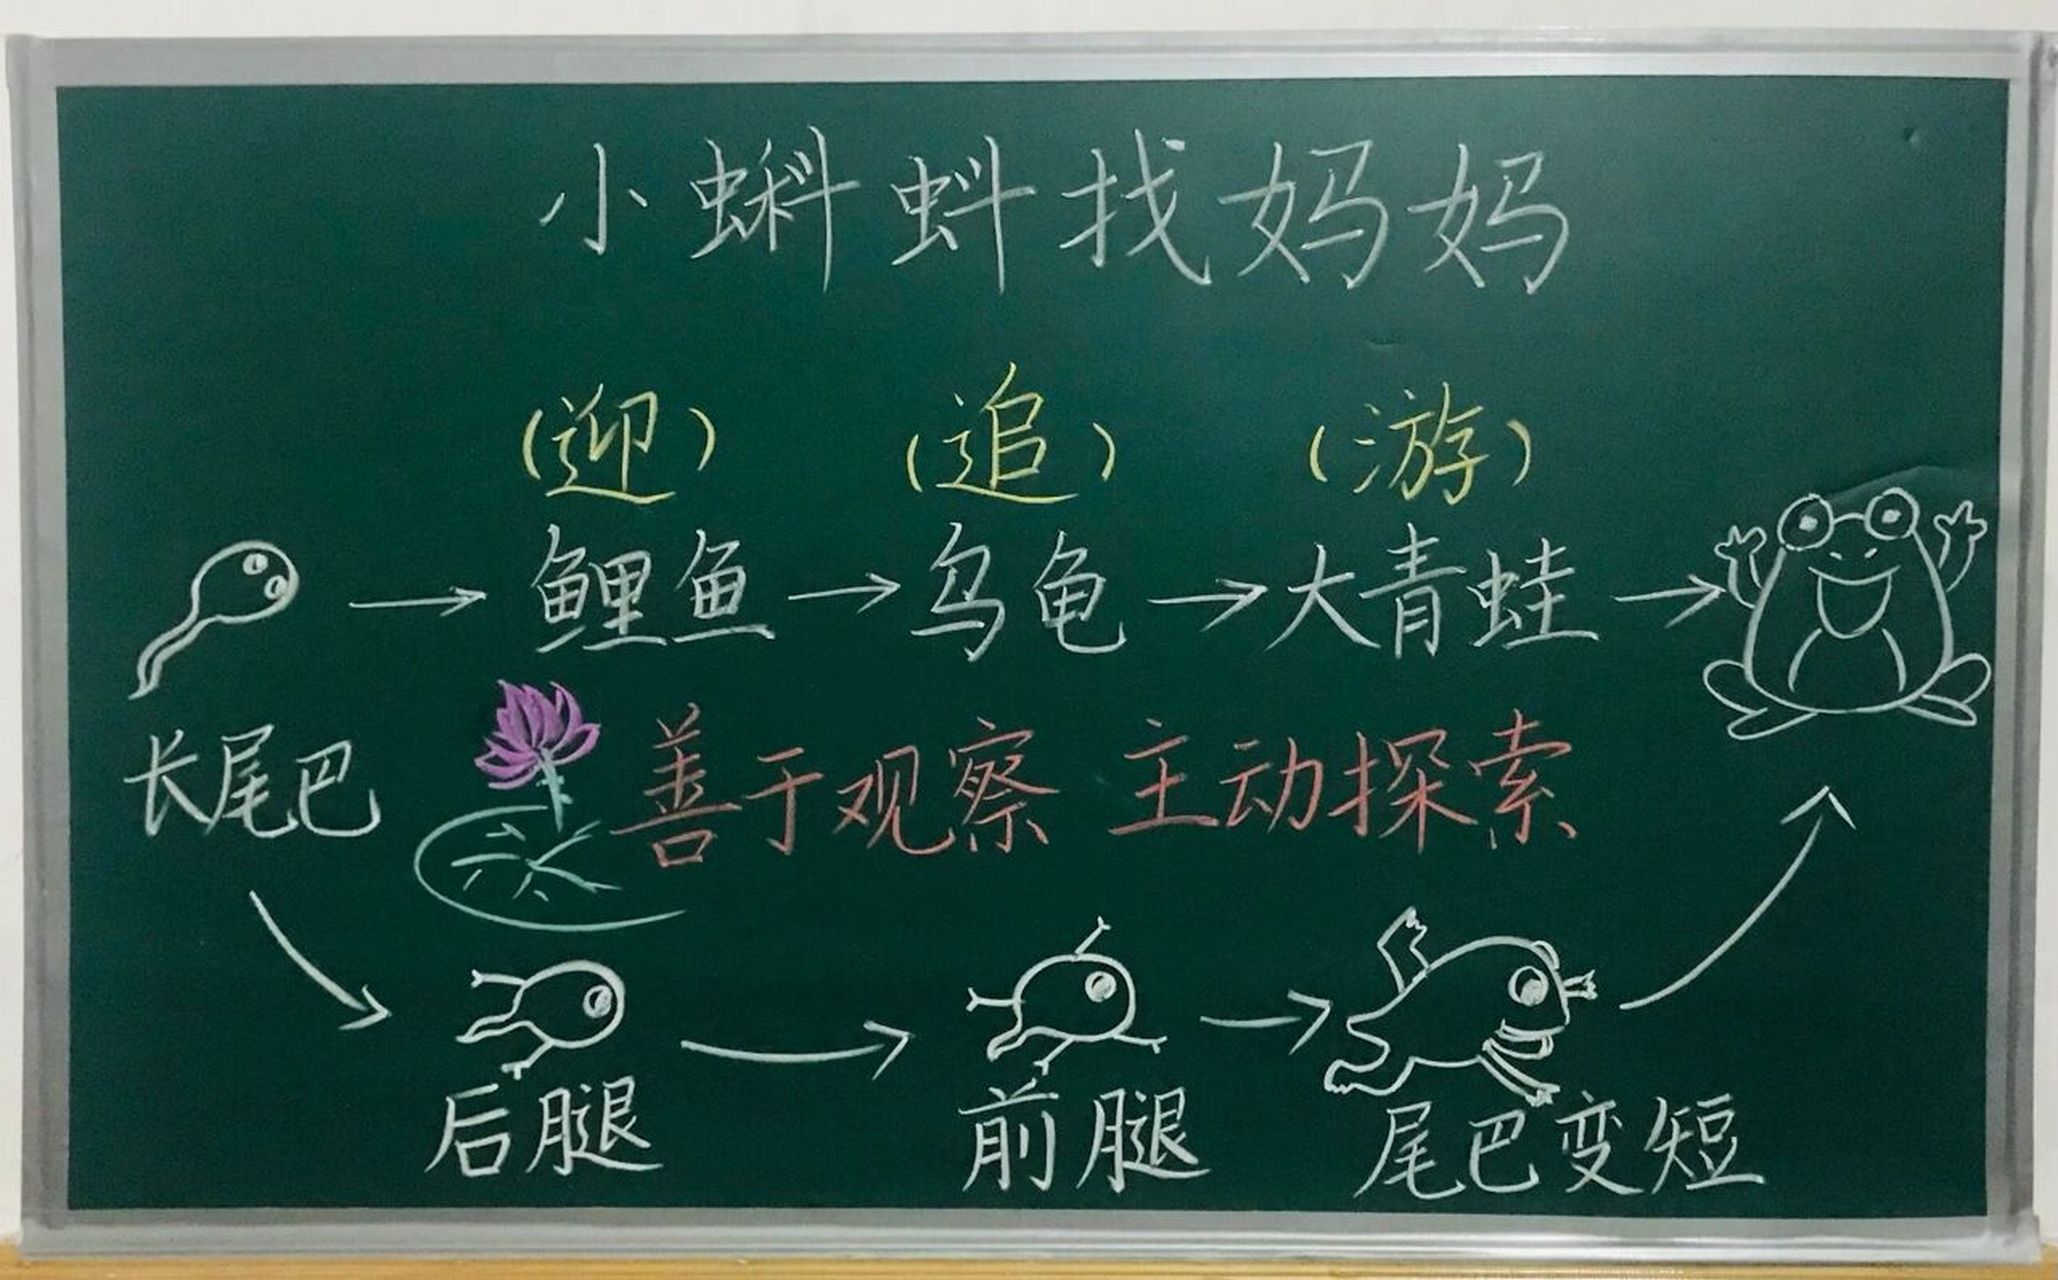 小蝌蚪找妈妈
(迎) (追) (游)
→ 鲤鱼 → 乌龟 → 大青蛙 →
长尾巴
善于观察 主动探索
后腿 前腿 尾巴变短